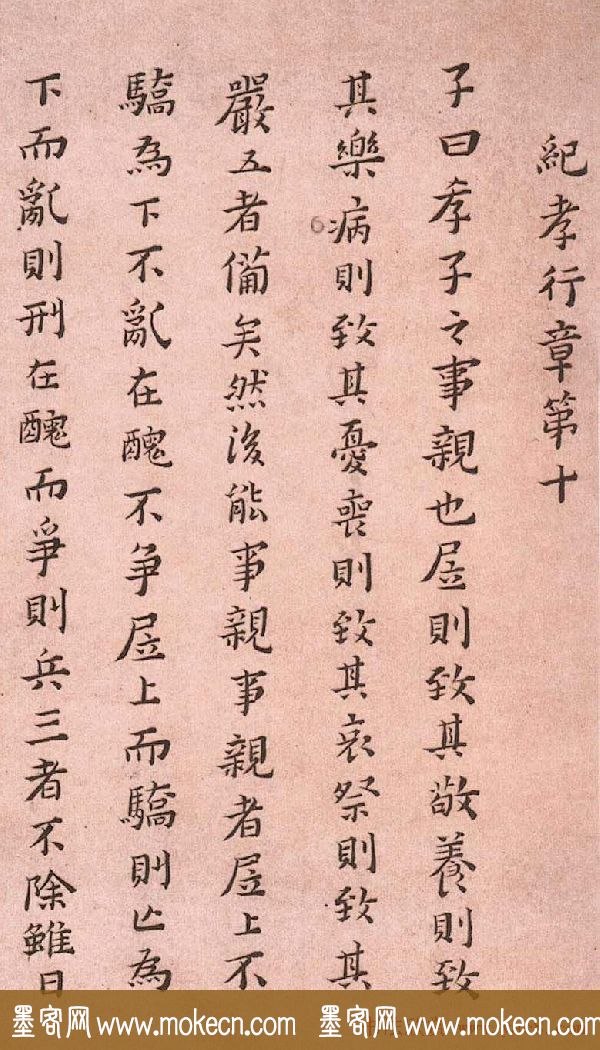 紀孝行章第十
子曰孝子之事親也居則致其敬養則致
其樂病則致其憂喪則致其哀祭則致其
嚴五者備矣然後能事親事親者居上不
驕為下不亂在醜不爭居上而驕則亡為
下而亂則刑在醜而爭則兵三者不除雖日
墨客网 www.mokecn.com 墨客网 www.mokecn.com